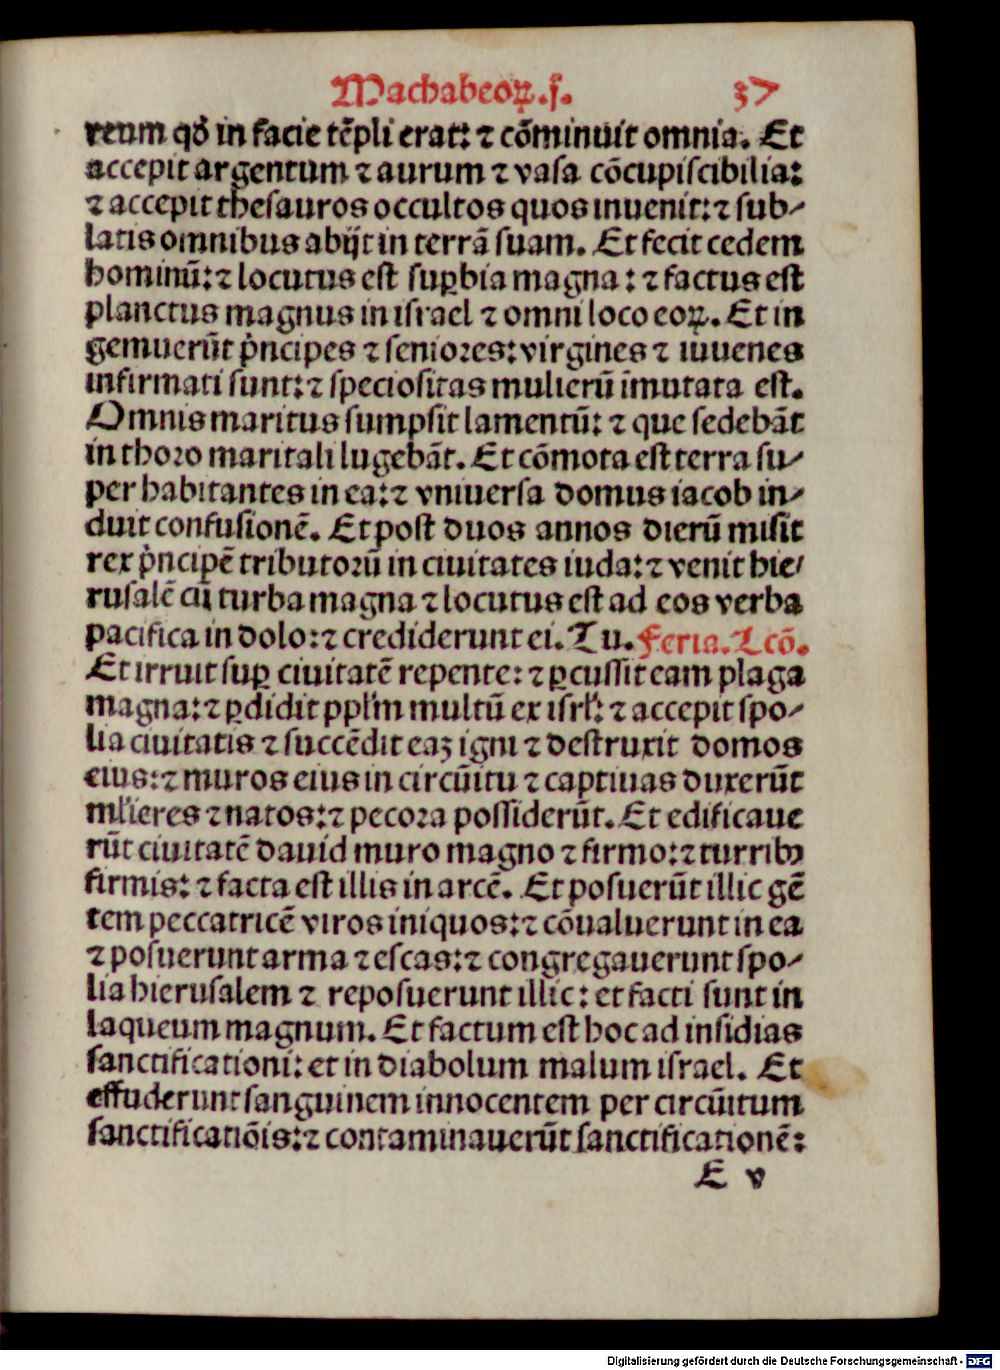 Machabeoꝝ. ſ. 37
reum qđ in facie tẽpli erat: ⁊ cõminuit omnia. Et
accepit argentum ⁊ aurum ⁊ vaſa cõcupiſcibilia:
⁊ accepit theſauros occultos quos inuenit: ⁊ ſub⸗
latis omnibus abijt in terrã ſuam. Et fecit cedem
hominũ: ⁊ locutus eſt ſuꝑbia magna: ⁊ factus eſt
planctus magnus in iſrael ⁊ omni loco eoꝝ. Et in
gemuerũt p̍ncipes ⁊ ſenioꝛes: virgines ⁊ iuuenes
infirmati ſunt: ⁊ ſpecioſitas mulierũ ĩmutata eſt.
Omnis maritus ſumpſit lamentũ: ⁊ que ſedebãt
in thoꝛo maritali lugebãt. Et cõmota eſt terra ſu⸗
per habitantes in ea: ⁊ vniuerſa domus iacob in⸗
duit confuſionẽ. Et poſt duos annos dierũ miſit
rex p̍ncipẽ tributoꝛũ in ciuitates iuda: ⁊ venit hie⸗
ruſalẽ cũ turba magna ⁊ locutus eſt ad eos verba
pacifica in dolo: ⁊ crediderunt ei. Tu. Feria. Lcõ.
Et irruit ſuꝑ ciuitatẽ repente: ⁊ ꝑcuſſit eam plaga
magna: ⁊ ꝑdidit ppl'm multũ ex iſrl': ⁊ accepit ſpo⸗
lia ciuitatis ⁊ ſuccẽdit eaꝫ igni ⁊ deſtruxit domos
eius: ⁊ muros eius in circũitu ⁊ captiuas duxerũt
ml'ieres ⁊ natos: ⁊ pecoꝛa poſſiderũt. Et edificaue
rũt ciuitatẽ dauid muro magno ⁊ firmo: ⁊ turribꝫ
firmis: ⁊ facta eſt illis in arcẽ. Et poſuerũt illic gẽ
tem peccatricẽ viros iniquos: ⁊ cõualuerunt in ea
⁊ poſuerunt arma ⁊ eſcas: ⁊ congregauerunt ſpo⸗
lia hieruſalem ⁊ repoſuerunt illic: et facti ſunt in
laqueum magnum. Et factum eſt hoc ad inſidias
ſanctificationi: et in diabolum malum iſrael. Et
effuderunt ſanguinem innocentem per circũitum
ſanctificatiõis: ⁊ contaminauerũt ſanctificationẽ:
E v
Digitalisierung gefördert durch die Deutsche Forschungsgemeinschaft - DFG